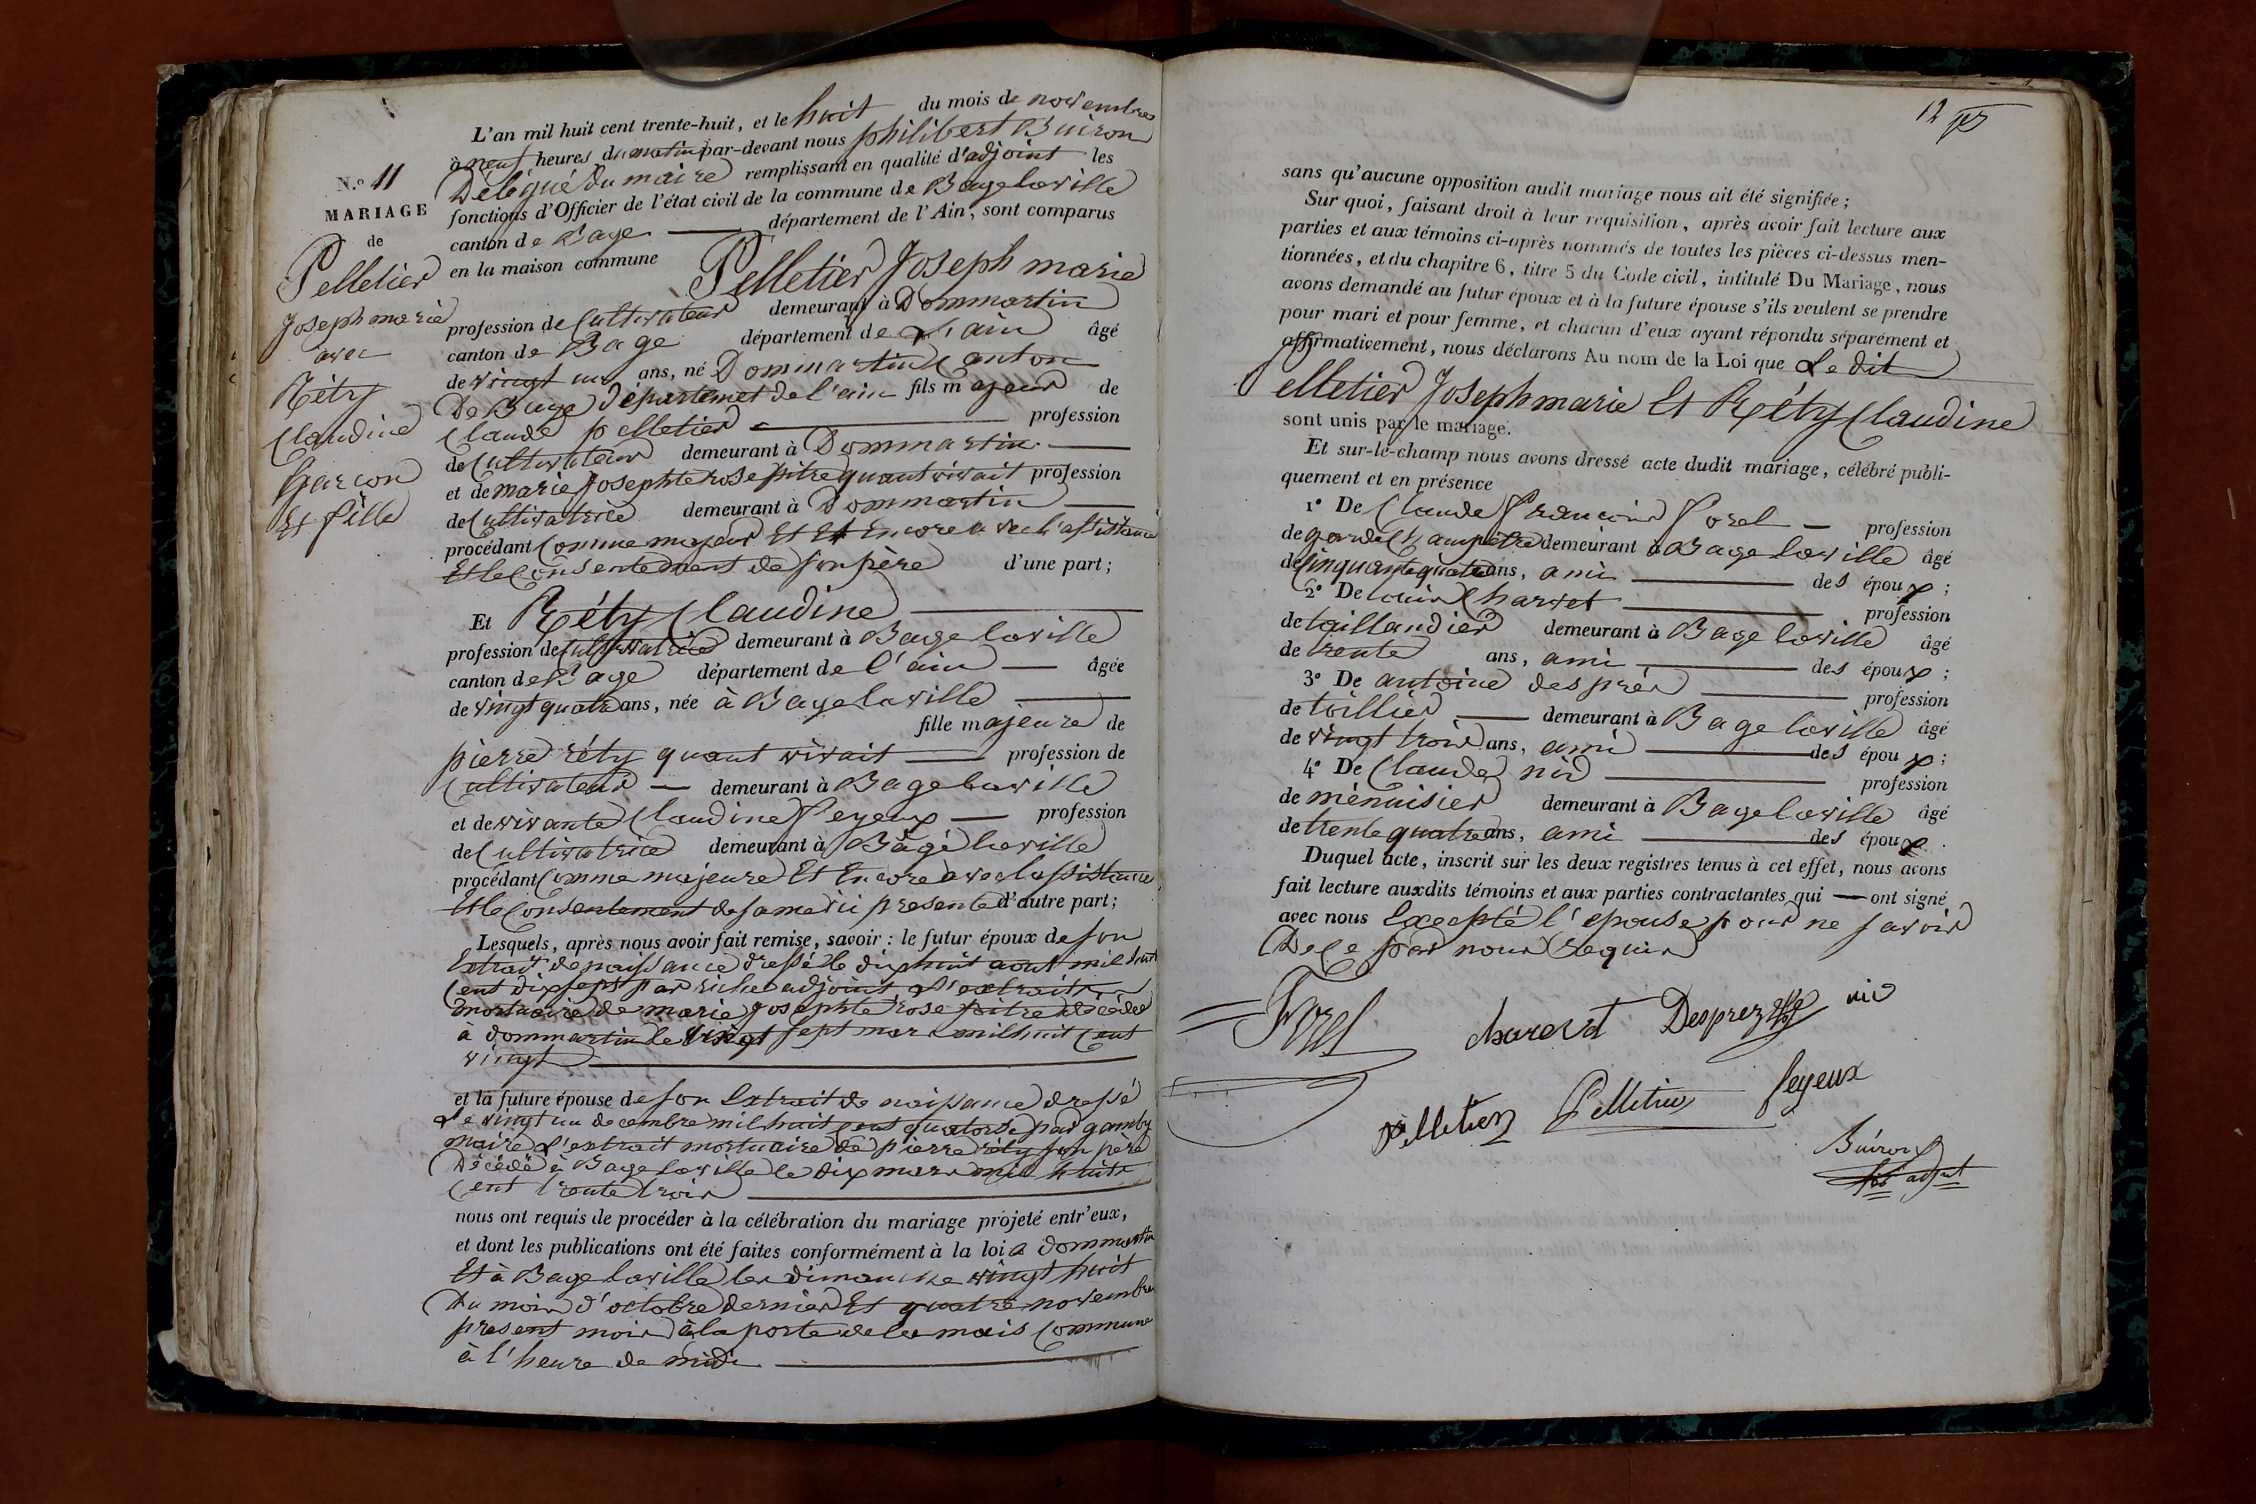 N.o 11
MARIAGE
de
Pelletier
Joseph marie
avec
Réty
Claudine
Garcon
Et fille
L'an mil huit cent trente-huit, et le huit du mois de novembre
à neuf heures du matin par-devant nous philibert Buiron
Délégué du maire remplissant en qualité d'adjoint les
fonctions d'Officier de l'état civil de la commune de Bage laville
canton de Bage département de l'Ain, sont comparus
en la maison commune
Pelletier Joseph marie
profession de Cultivateur demeurant à Dommartin
canton de Bage département de l'ain âgé
de vingt un ans, né Dommartin Canton
De Bage Département de l'ain fils majeur de
Claude pelletier profession
de Cultivateur demeurant à Dommartin
et de marie Josephte rose pitre quant vivait profession
de Cultivatrice demeurant à Dommartin
procédant Comme majeur Et Et Encore avec l'assistance
Et le Consentement de son père d'une part;
Et Réty Claudine
profession de Cultivatrice demeurant à Bage laville
canton de Bage département de l'ain âgée
de vingt quatre ans, née à Bage laville
fille majeure de
pierre réty quant vivait profession de
Cultivateur demeurant à Bage laville
et de vivante Claudine Feyeux profession
de Cultivatrice demeurant à Bagé laville
procédant Comme majeure Et Encore avec lassistance
Et le Consentement de sa mere présente d'autre part;
Lesquels, après nous avoir fait remise, savoir: le futur époux de son
Extrait de naissance dressé le dix huit aout mil huit
Cent dix sept par riche adjoint L'extrait
mortuaire de marie josephte rose pitre décédée
à dommartin le vingt sept mars mil huit Cent
vingt
et la future épouse de son Extrait de naissance dressé
Le vingt un decembre mil huit cent quatorse par gamby
maire L'extrait mortuaire de pierre réty son père
Décédé à Bage laville le dix mars mil huit
Cent trente trois
nous ont requis de procéder à la célébration du mariage projeté entr'eux,
et dont les publications ont été faites conformément à la loi a dommartin
Et à Bage laville les dimanche vingt huit
Du mois d'octobre dernier Et quatre novembre
present mois à la porte de la mais Commune
à l'heure de midi
12
sans qu'aucune opposition audit mariage nous ait été signifiée;
Sur quoi, faisant droit à leur requisition, après avoir fait lecture aux
parties et aux témoins ci-après nommés de toutes les pièces ci-dessus men-
tionnées, et du chapitre 6, titre 5 du Code civil, intitulé Du Mariage, nous
avons demandé au futur époux et à la future épouse s'ils veulent se prendre
pour mari et pour femme, et chacun d'eux ayant répondu séparément et
affirmativement, nous déclarons Au nom de la Loi que Le dit
Pelletier Joseph marie Et Réty Claudine
sont unis par le mariage.
Et sur-le-champ nous avons dressé acte dudit mariage, célébré publi-
quement et en présence
1° De Claude Francois Forel profession
de garde Champêtre demeurant à Bage laville âgé
de Cinquante quatre ans, ami des époux;
2° De louis Charvet profession
de taillandier demeurant à Bage laville âgé
de trente ans, ami des époux;
3° De antoine després profession
de toillier demeurant à Bage laville âgé
de vingt trois ans, ami des époux;
4° De Claude nid profession
de ménuisier demeurant à Bage laville âgé
de trente quatre ans, ami des époux.
Duquel acte, inscrit sur les deux registres tenus à cet effet, nous avons
fait lecture auxdits témoins et aux parties contractantes qui ont signé
avec nous Excepté l'épouse pour ne savoir
De Ce par nous requis
Forel
charvet
Desprez
nid
pelletier
Pelletier
feyeux
Buiron
adjt